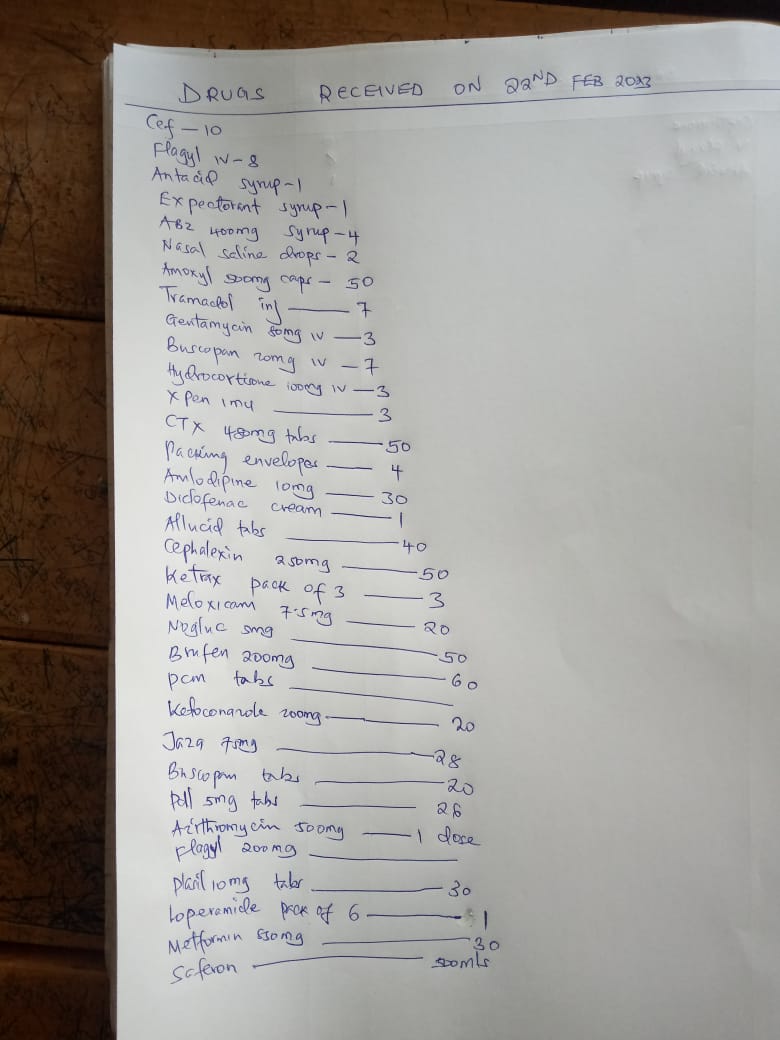 DRUGS RECEIVED ON 22ND FEB 2023
Cef - 10
Flagyl IV - 8
Antacid syrup - 1
Expectorant syrup - 1
ABZ 400mg syrup - 4
Nasal saline drops - 2
Amoxyl 500mg caps - 50
Tramadol inj - 7
Gentamycin 80mg IV - 3
Buscopan 20mg IV - 7
Hydrocortisone 100mg IV - 3
X pen 1mu - 3
CTX 480mg tabs - 50
Packing envelopes - 4
Amlodipine 10mg - 30
Diclofenac cream - 1
Allucid tabs - 40
Cephalexin 250mg - 50
Ketrax pack of 3 - 3
Meloxicam 7.5mg - 20
Nogluc 5mg - 50
Brufen 200mg - 60
pcm tabs -
Ketoconazole 200mg - 20
Jaza 75mg - 28
Buscopan tabs - 20
5mg tabs - 26
Azithromycin 500mg - 1 dose
Flagyl 200mg -
Plasil 10mg tabs - 30
Loperamide pack of 6 - 1
Metformin 850mg - 30
Saferon - 500mls